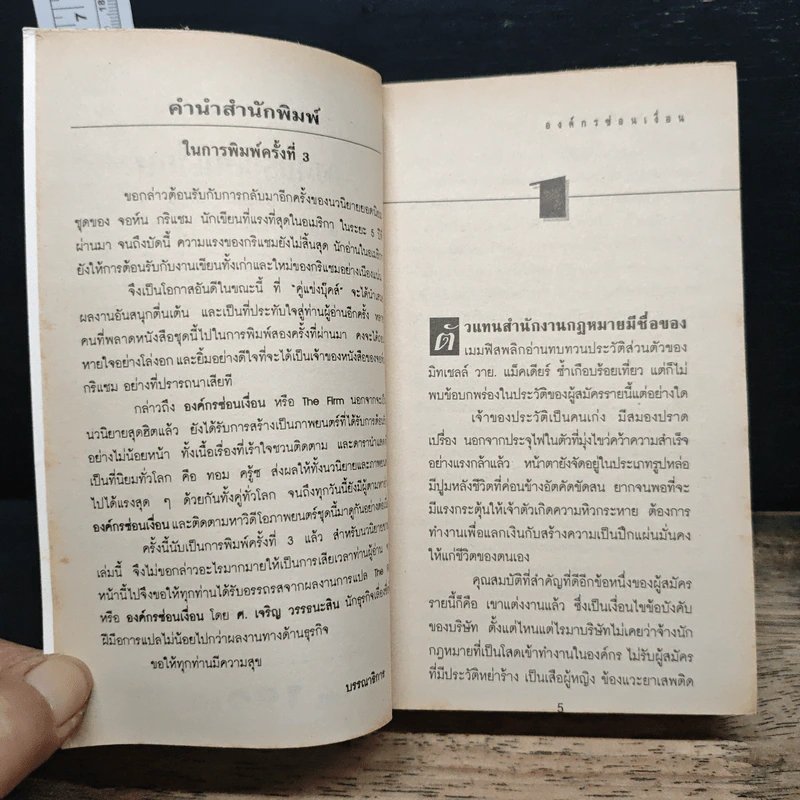 7
18
คำนำสำนักพิมพ์
ในการพิมพ์ครั้งที่ 3
ขอกล่าวต้อนรับกับการกลับมาอีกครั้งของนวนิยายยอดนิยม
ชุดของ จอห์น กริแชม นักเขียนที่แรงที่สุดในอเมริกา ในระยะ 5 ปีที่
ผ่านมา จนถึงบัดนี้ ความแรงของกริแชมยังไม่สิ้นสุด นักอ่านในอเมริกา
ยังให้การต้อนรับกับงานเขียนทั้งเก่าและใหม่ของกริแชมอย่างเนืองแน่น
จึงเป็นโอกาสอันดีในขณะนี้ ที่ "คู่แข่งบุ๊คส์" จะได้นำเสนอ
ผลงานอันสนุกตื่นเต้น และเป็นที่ประทับใจสู่ท่านผู้อ่านอีกครั้ง
คนที่พลาดหนังสือชุดนี้ไปในการพิมพ์สองครั้งที่ผ่านมา คงจะได้
หายใจอย่างโล่งอก และยิ้มอย่างดีใจที่จะได้เป็นเจ้าของหนังสือของจอห์น
กริแชม อย่างที่ปรารถนาเสียที
กล่าวถึง องค์กรซ่อนเงื่อน หรือ The Firm นอกจากจะเป็น
นวนิยายสุดฮิตแล้ว ยังได้รับการสร้างเป็นภาพยนตร์ที่ได้รับการต้อนรับ
อย่างไม่น้อยหน้า ทั้งเนื้อเรื่องที่เร้าใจชวนติดตาม และดารานำแสดง
เป็นที่นิยมทั่วโลก คือ ทอม ครู้ซ ส่งผลให้ทั้งนวนิยายและภาพยนตร์
ไปได้แรงสุด ๆ ด้วยกันทั้งคู่ทั่วโลก จนถึงทุกวันนี้ยังมีผู้ตามหา
องค์กรซ่อนเงื่อน และติดตามหาวิดีโอภาพยนตร์ชุดนี้มาดูกันอย่างต่อเนื่อง
ครั้งนี้นับเป็นการพิมพ์ครั้งที่ 3 แล้ว สำหรับนวนิยาย
เล่มนี้ จึงไม่ขอกล่าวอะไรมากมายให้เป็นการเสียเวลาท่านผู้อ่าน
หน้านี้ไปจึงขอให้ทุกท่านได้รับอรรถรสจากผลงานการแปล The
หรือ องค์กรซ่อนเงื่อน โดย ศ. เจริญ วรรธนะสิน นักธุรกิจเลื่องชื่อ
ฝีมือการแปลไม่น้อยไปกว่าผลงานทางด้านธุรกิจ
ขอให้ทุกท่านมีความสุข
บรรณาธิการ
องค์กรซ่อนเงื่อน
1
ตัวแทนสำนักงานกฎหมายมีชื่อของ
เมมฟิสพลิกอ่านทบทวนประวัติส่วนตัวของ
มิทเชลล์ วาย. แม็คเดียร์ ซ้ำเกือบร้อยเที่ยว แต่ก็ไม่
พบข้อบกพร่องในประวัติของผู้สมัครรายนี้แต่อย่างใด
เจ้าของประวัติเป็นคนเก่ง มีสมองปราด
เปรื่อง นอกจากประจุไฟในตัวที่มุ่งไขว่คว้าความสำเร็จ
อย่างแรงกล้าแล้ว หน้าตายังจัดอยู่ในประเภทรูปหล่อ
มีปูมหลังชีวิตที่ค่อนข้างอัตคัดขัดสน ยากจนพอที่จะ
มีแรงกระตุ้นให้เจ้าตัวเกิดความหิวกระหาย ต้องการ
ทำงานเพื่อแลกเงินกับสร้างความเป็นปึกแผ่นมั่นคง
ให้แก่ชีวิตของตนเอง
คุณสมบัติที่สำคัญที่ดีอีกข้อหนึ่งของผู้สมัคร
รายนี้ก็คือ เขาแต่งงานแล้ว ซึ่งเป็นเงื่อนไขข้อบังคับ
ของบริษัท ตั้งแต่ไหนแต่ไรมาบริษัทไม่เคยว่าจ้างนัก
กฎหมายที่เป็นโสดเข้าทำงานในองค์กร ไม่รับผู้สมัคร
ที่มีประวัติหย่าร้าง เป็นเสือผู้หญิง ข้องแวะยาเสพติด
5